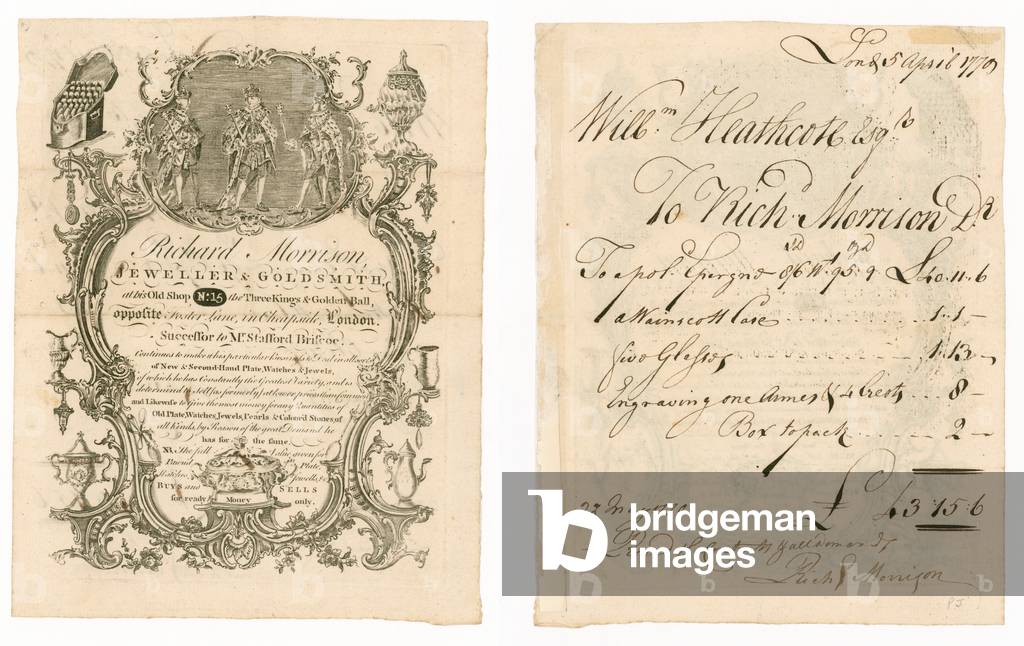 Richard Morrison,
JEWELLER & GOLDSMITH,
at his Old Shop No. 15 the Three Kings & Golden Ball,
opposite Foster Lane, in Cheapside, London.
Successor to Mr. Stafford Briscoe.
Continues to make it his particular Business to Deal in all sorts
of New & Second-Hand Plate, Watches & Jewels,
of which he has Constantly the Greatest Variety, and is
determin'd to sell (as formerly) at lower prices than
and Likewise to Give the most money for any Quantities of
Old Plate, Watches, Jewels, Pearls & Colour'd Stones, of
all Kinds, by Reason of the great Demand he
has for the same.
NB. The full Value given for
Plate,
Watches, Jewels, &c
BUYS and SELLS
for ready Money only.
Lond. 5 April 1770
Willm Heathcote Esqr
To Richd Morrison Dr
To a pol. Epergne 86 Wt. 95:9 £40.11.6
a Wainscott Case 1.1-
five Glasses 1.13-
Engraving one Armes & 4 Crests 8-
Box to pack 2-
£ 43.15.6
Richd Morrison
PJ
bridgeman
images